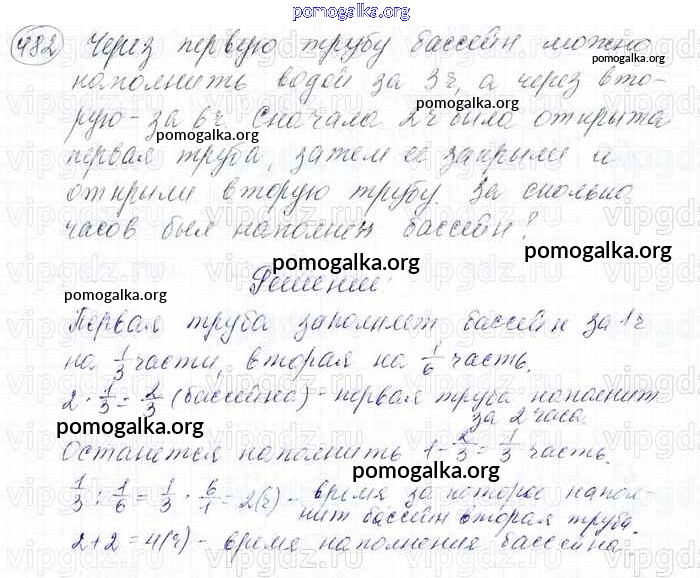 pomogalka.org
482 Через первую трубу бассейн можно
наполнить водой за 3 ч, а через вто-
рую - за 6 ч. Сначала 2 ч была открыта
первая труба, затем её закрыли и
открыли вторую трубу. За сколько
часов был наполнен бассейн?
Решение:
Первая труба заполняет бассейн за 1 ч
на 1/3 части, вторая на 1/6 часть.
2 · 1/3 = 2/3 (бассейна) - первая труба наполнит
за 2 часа.
Останется наполнить 1 - 2/3 = 1/3 часть.
1/3 : 1/6 = 1/3 · 6/1 = 2 (ч) - время за которое напол-
нит бассейн вторая труба.
2 + 2 = 4 (ч) - время наполнения бассейна.
pomogalka.org
pomogalka.org
pomogalka.org
pomogalka.org
pomogalka.org
pomogalka.org
pomogalka.org
pomogalka.org
vipgdz.ru